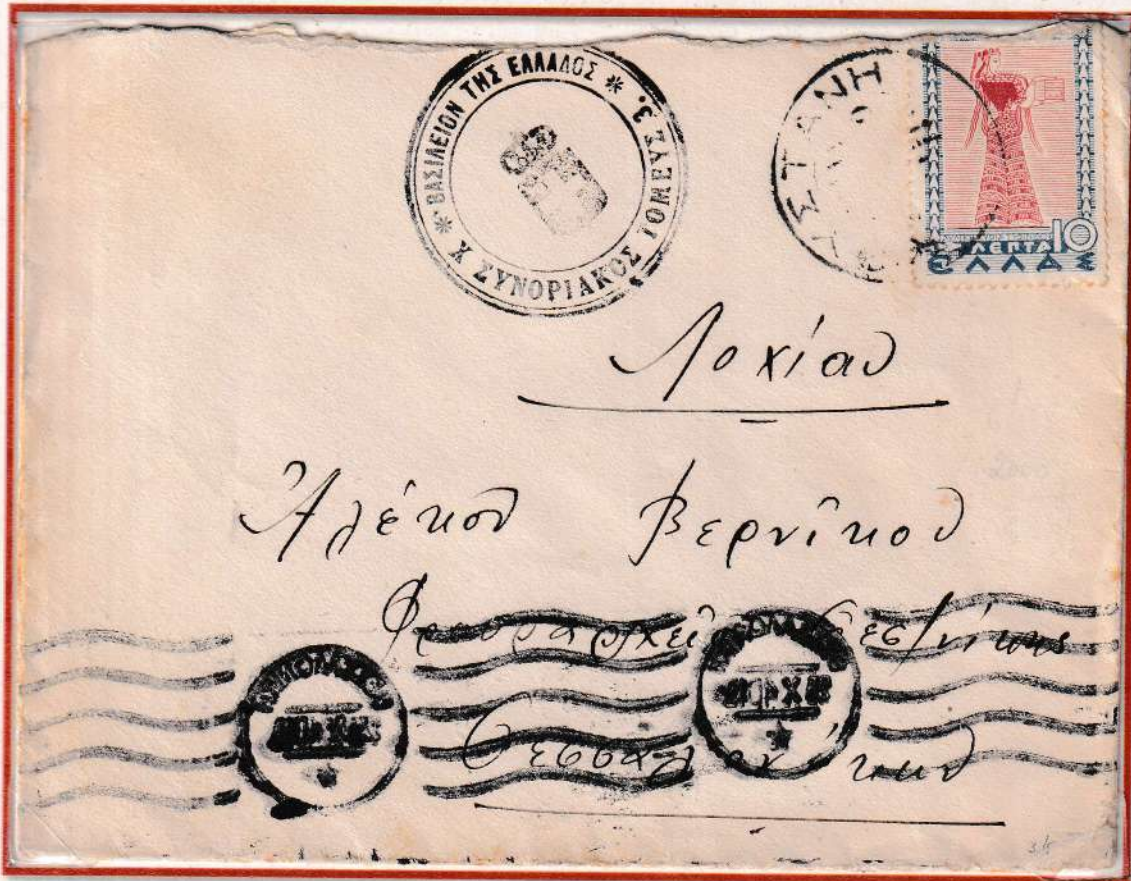 * ΒΑΣΙΛΕΙΟΝ ΤΗΣ ΕΛΛΑΔΟΣ *
Χ ΣΥΝΟΡΙΑΚΟΣ ΤΟΜΕΥΣ 3.
ΛΕΠΤΑ 10
ΕΛΛΑΣ
Λοχίαν
Ἀλέκον Βερνίκον
Φρουραρχεῖον Θεσ/νίκης
Θεσσαλονίκην